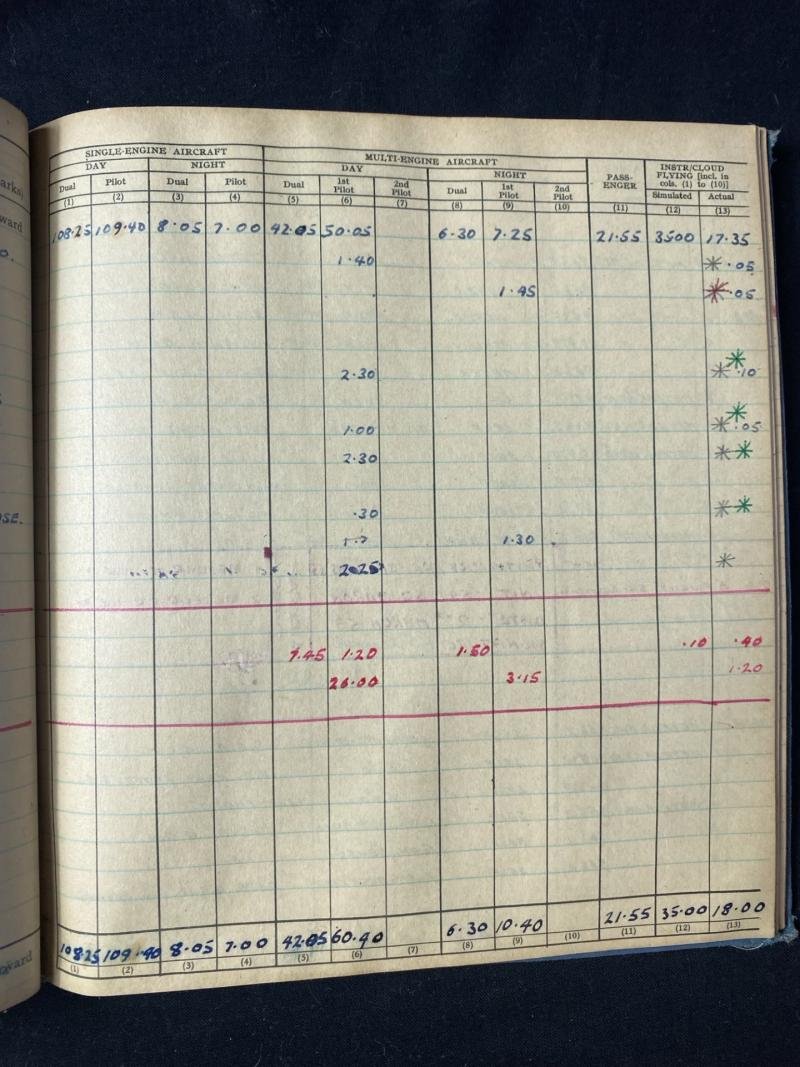 SINGLE-ENGINE AIRCRAFT MULTI-ENGINE AIRCRAFT PASS-ENGER INSTR/CLOUD FLYING [incl. in cols. (1) to (10)]
DAY NIGHT DAY NIGHT
Dual Pilot Dual Pilot Dual 1st Pilot 2nd Pilot Dual 1st Pilot 2nd Pilot Simulated Actual
(1) (2) (3) (4) (5) (6) (7) (8) (9) (10) (11) (12) (13)
ward 108.25 109.40 8.05 7.00 42.05 50.05 6.30 7.25 21.55 3500 17.35
1.40 .05
1.45 .05
2.30 .10
1.00 .05
2.30
SE. .30
1.30
2.25
7.45 1.20 1.50 .10 .40
26.00 3.15 1.20
108.25 109.40 8.05 7.00 42.05 60.40 6.30 10.40 21.55 35.00 18.00
(1) (2) (3) (4) (5) (6) (7) (8) (9) (10) (11) (12) (13)